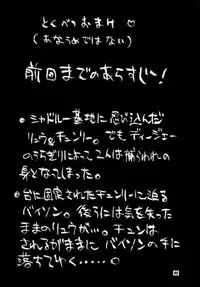 とくべつおまけ♡
(あなうめではない)
前回までのあらすじぃ!
・シャドルー基地に忍び込んだ
リュウ&チュンリー。でもディージェー
のうらぎりによって2人は捕らわれの
身となてしまった。
・台に固定されたチュンリーに迫る
バイソン。後ろには気を失った
ままのリュウが…。チュンは
されるがままに バイソンの手に
落ちてゆく……♡